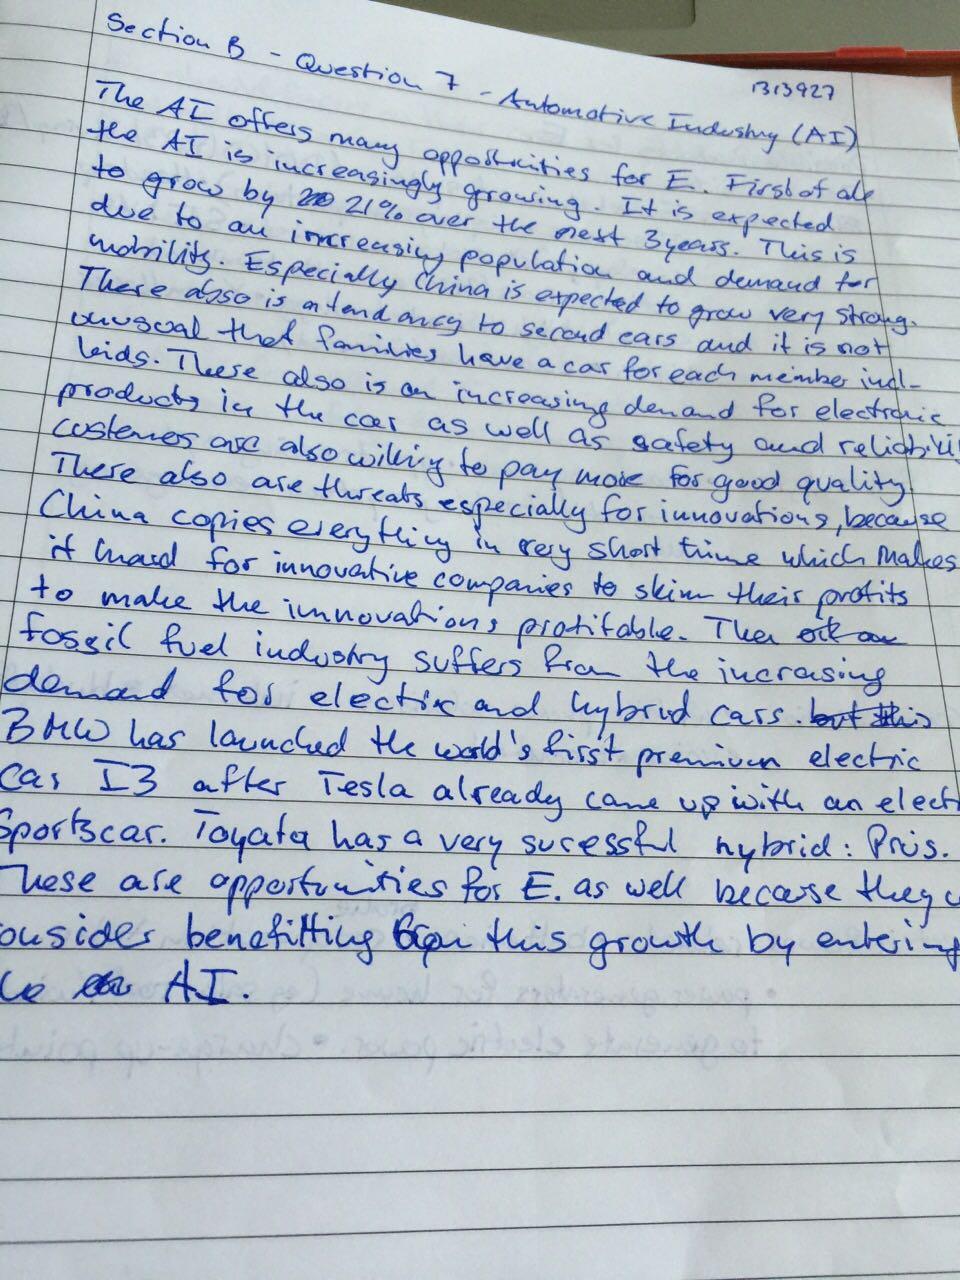 1313927
Section B - Question 7 - Automotive Industry (AI)
The AI offers many opportunities for E. First of all
the AI is increasingly growing. It is expected
to grow by 21% over the next 3 years. This is
due to an increasing population and demand for
mobility. Especially China is expected to grow very strong.
There also is a tendancy to second cars and it is not
unusual that families have a car for each member incl-
kids. There also is an increasing demand for electronic
products in the car as well as safety and reliabili
customers are also willing to pay more for good quality.
There also are threats especially for innovations, because
China copies everything in very short time which makes
it hard for innovative companies to skim their profits
to make the innovations profitable. The
fossil fuel industry suffers from the increasing
demand for electric and hybrid cars but this
BMW has launched the world's first premium electric
car I3 after Tesla already came up with an elect
Sportscar. Toyata has a very sucessful hybrid: Prius.
These are opportunities for E. as well because they c
onsider benefitting from this growth by entering
AI.